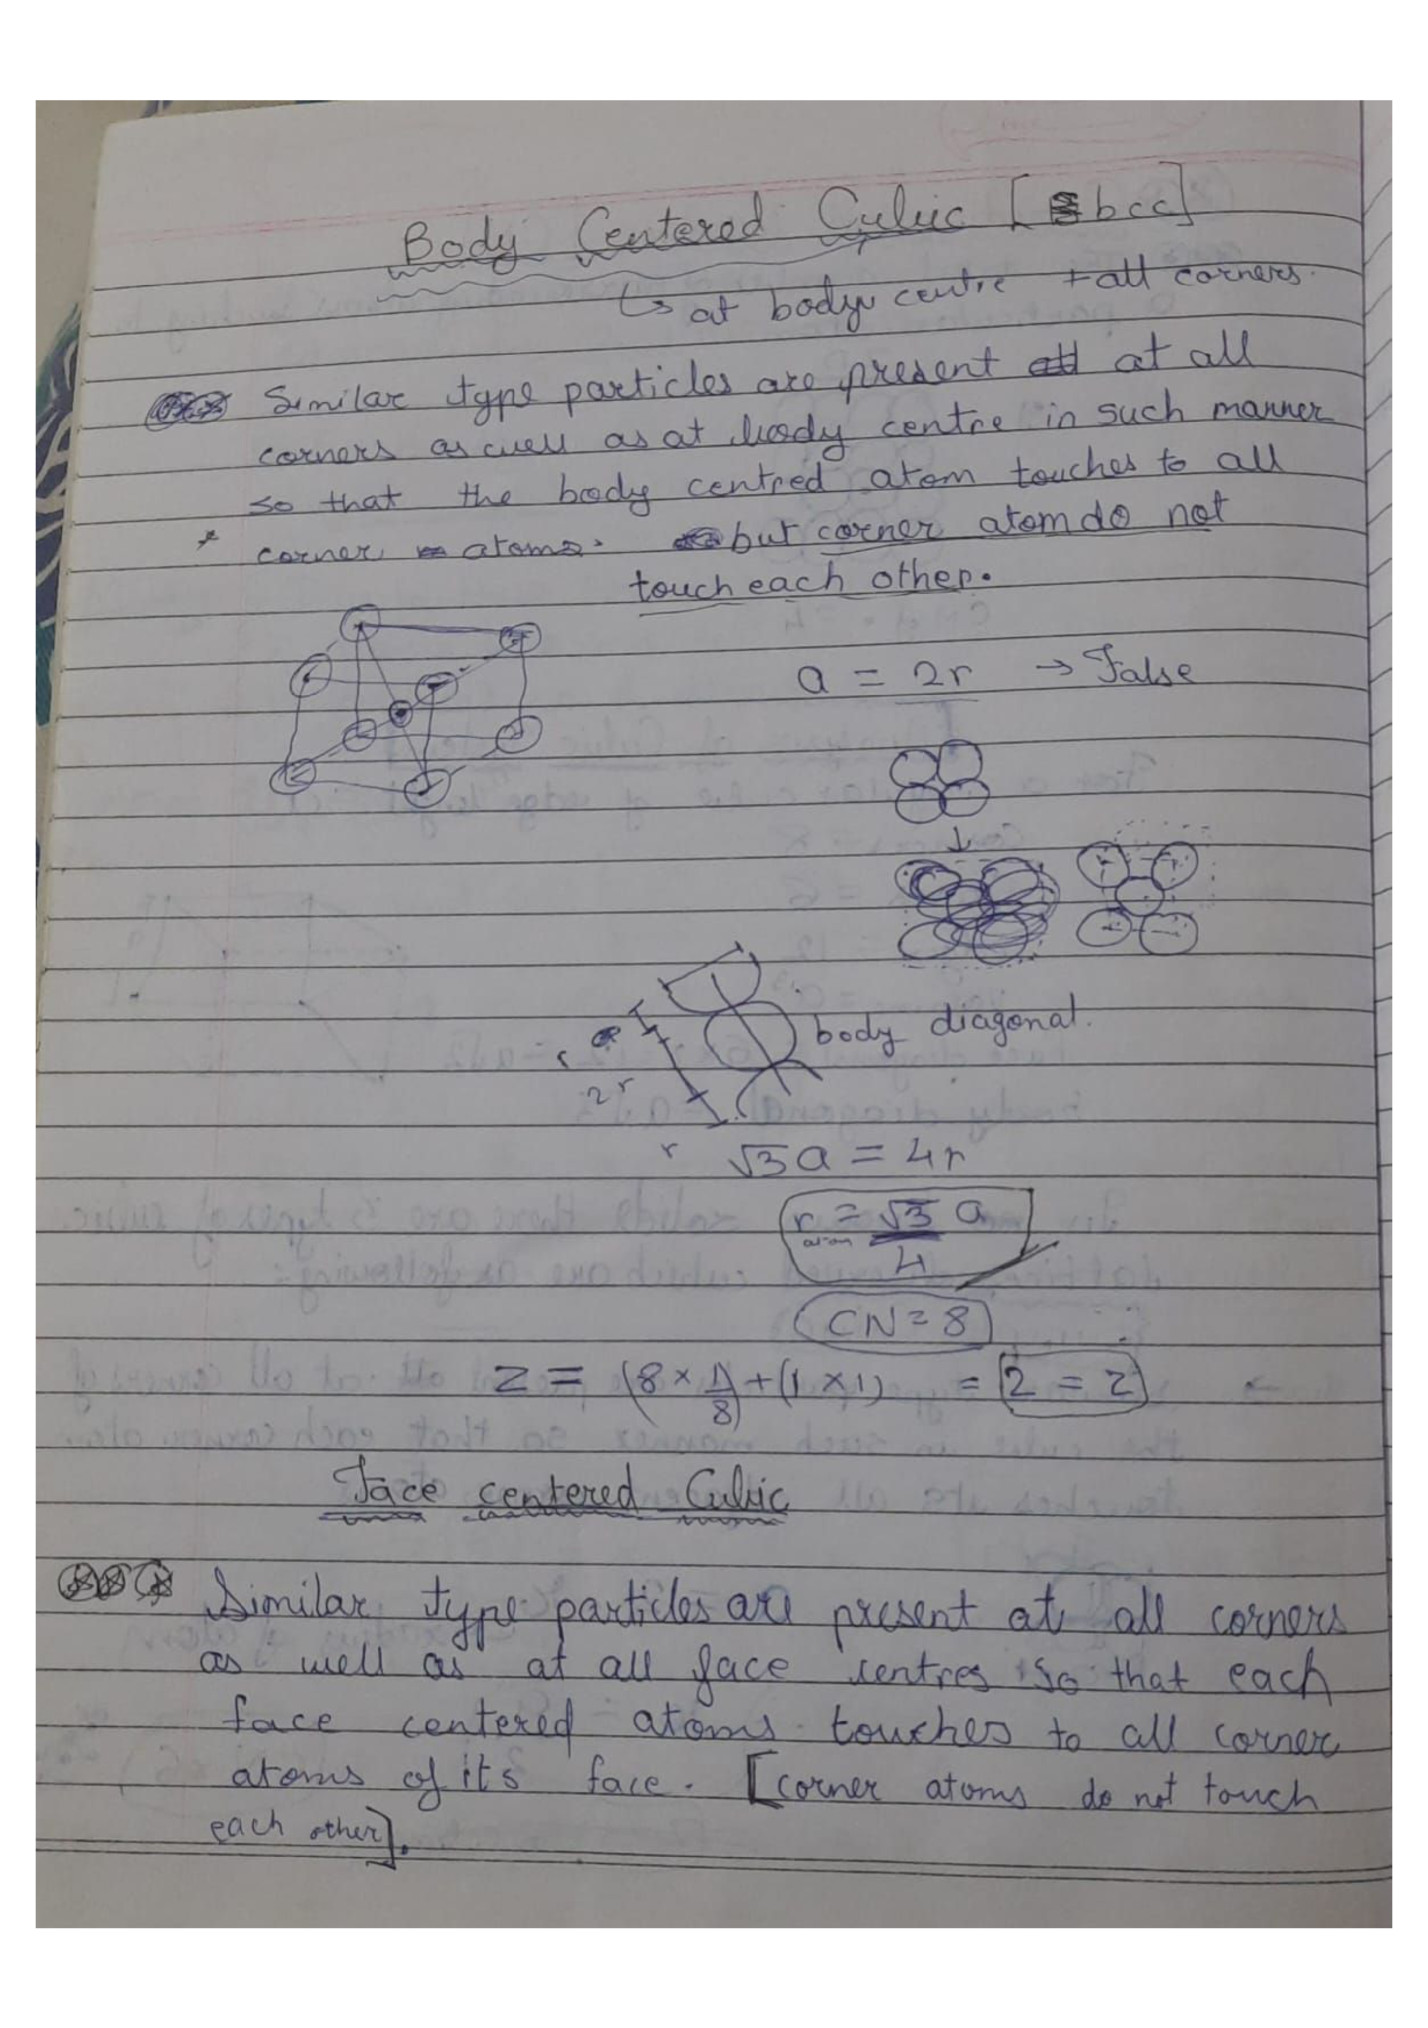 Body Centered Cubic [bcc]
↳ at body centre + all corners.
Similar type particles are present at all
corners as well as at body centre in such manner
so that the body centred atom touches to all
* corner atoms. but corner atom do not
touch each other.
a = 2r → False
↓
body diagonal.
r
2r
r
√3a = 4r
r atom = √3 a / 4
CN = 8
Z = (8 × 1/8) + (1 × 1) = 2 = Z
Face centered Cubic
Similar type particles are present at all corners
as well as at all face centres so that each
face centered atoms touches to all corner
atoms of its face. [corner atoms do not touch
each other].